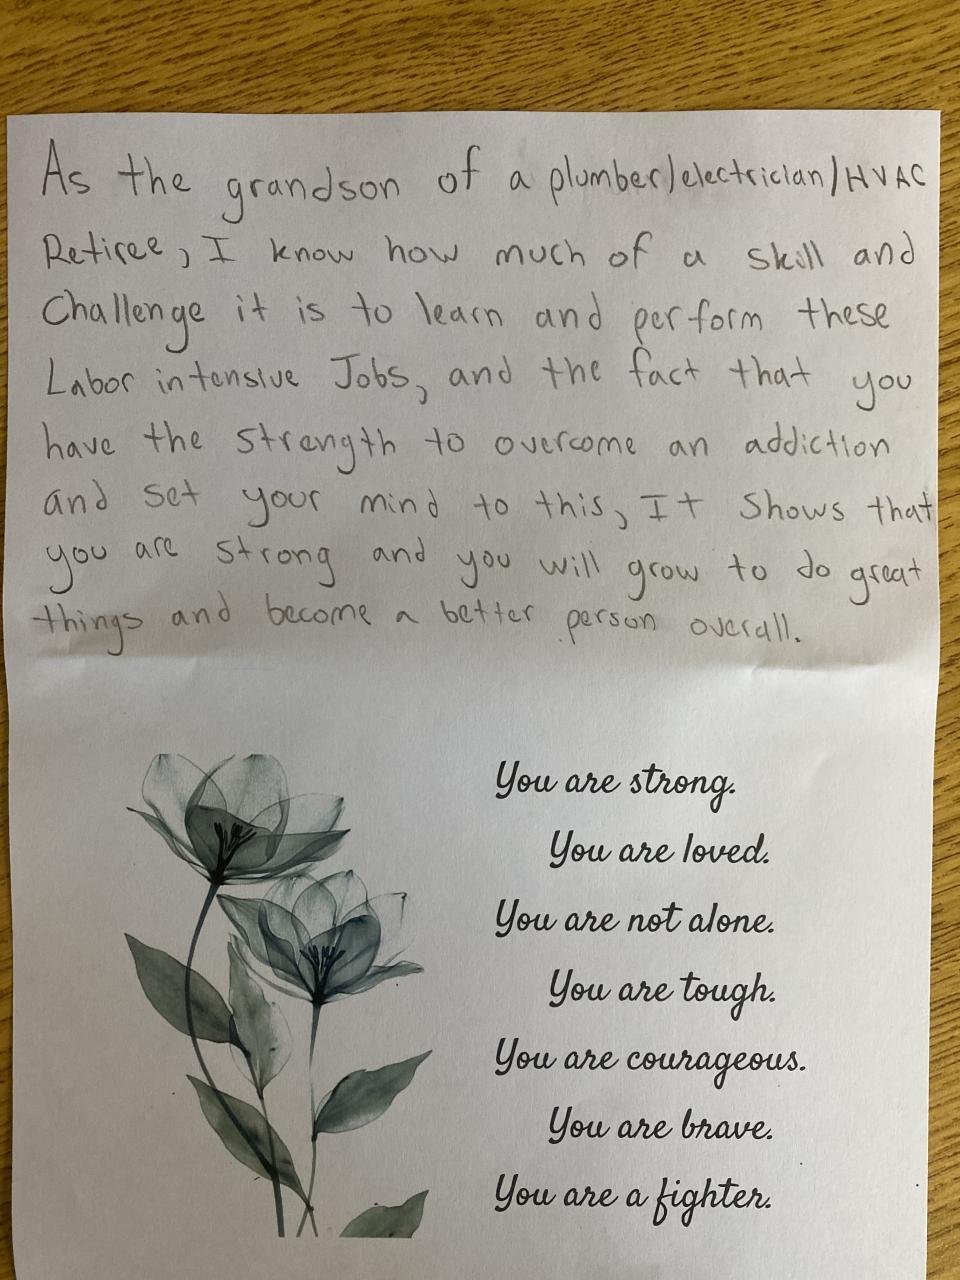 As the grandson of a plumber/electrician/HVAC
Retiree, I know how much of a skill and
Challenge it is to learn and perform these
Labor intensive Jobs, and the fact that you
have the strength to overcome an addiction
and set your mind to this, It Shows that
you are strong and you will grow to do great
things and become a better person overall.
You are strong.
You are loved.
You are not alone.
You are tough.
You are courageous.
You are brave.
You are a fighter.